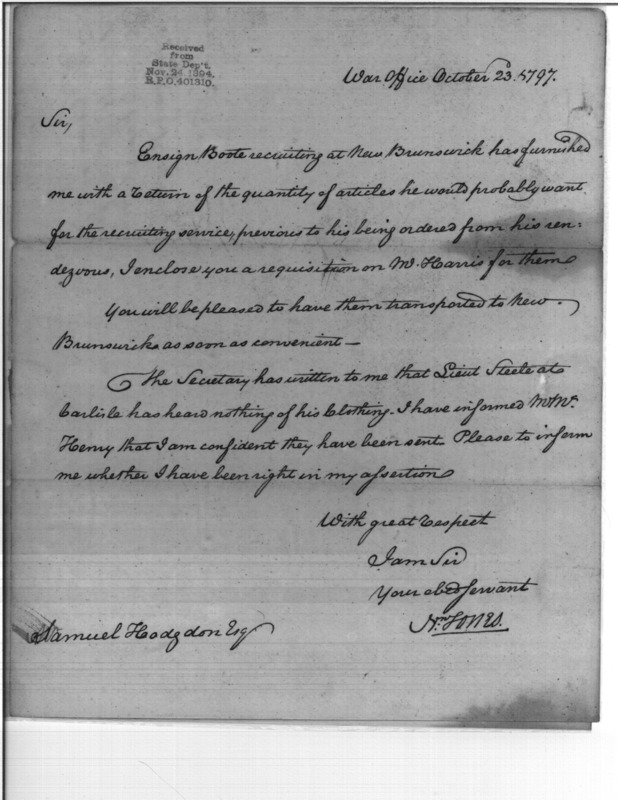 Received
from
State Dep't.
Nov. 24, 1894.
R.P.O. 401310.
War Office October 23. 1797.
Sir,
Ensign Boote recruiting at New Brunswick has furnished
me with a return of the quantity of articles he would probably want
for the recruiting service, previous to his being ordered from his ren=
dezvous, I enclose you a requisition on Mr. Harris for them
You will be pleased to have them transported to New
Brunswick as soon as convenient—
The Secretary has written to me that Lieut Steele at
Carlisle has heard nothing of his Clothing. I have informed
Henry that I am confident they have been sent. Please to inform
me whether I have been right in my assertion
With great respect
I am Sir
Your obed servant
Wm Jones.
Samuel Hodgdon Esq